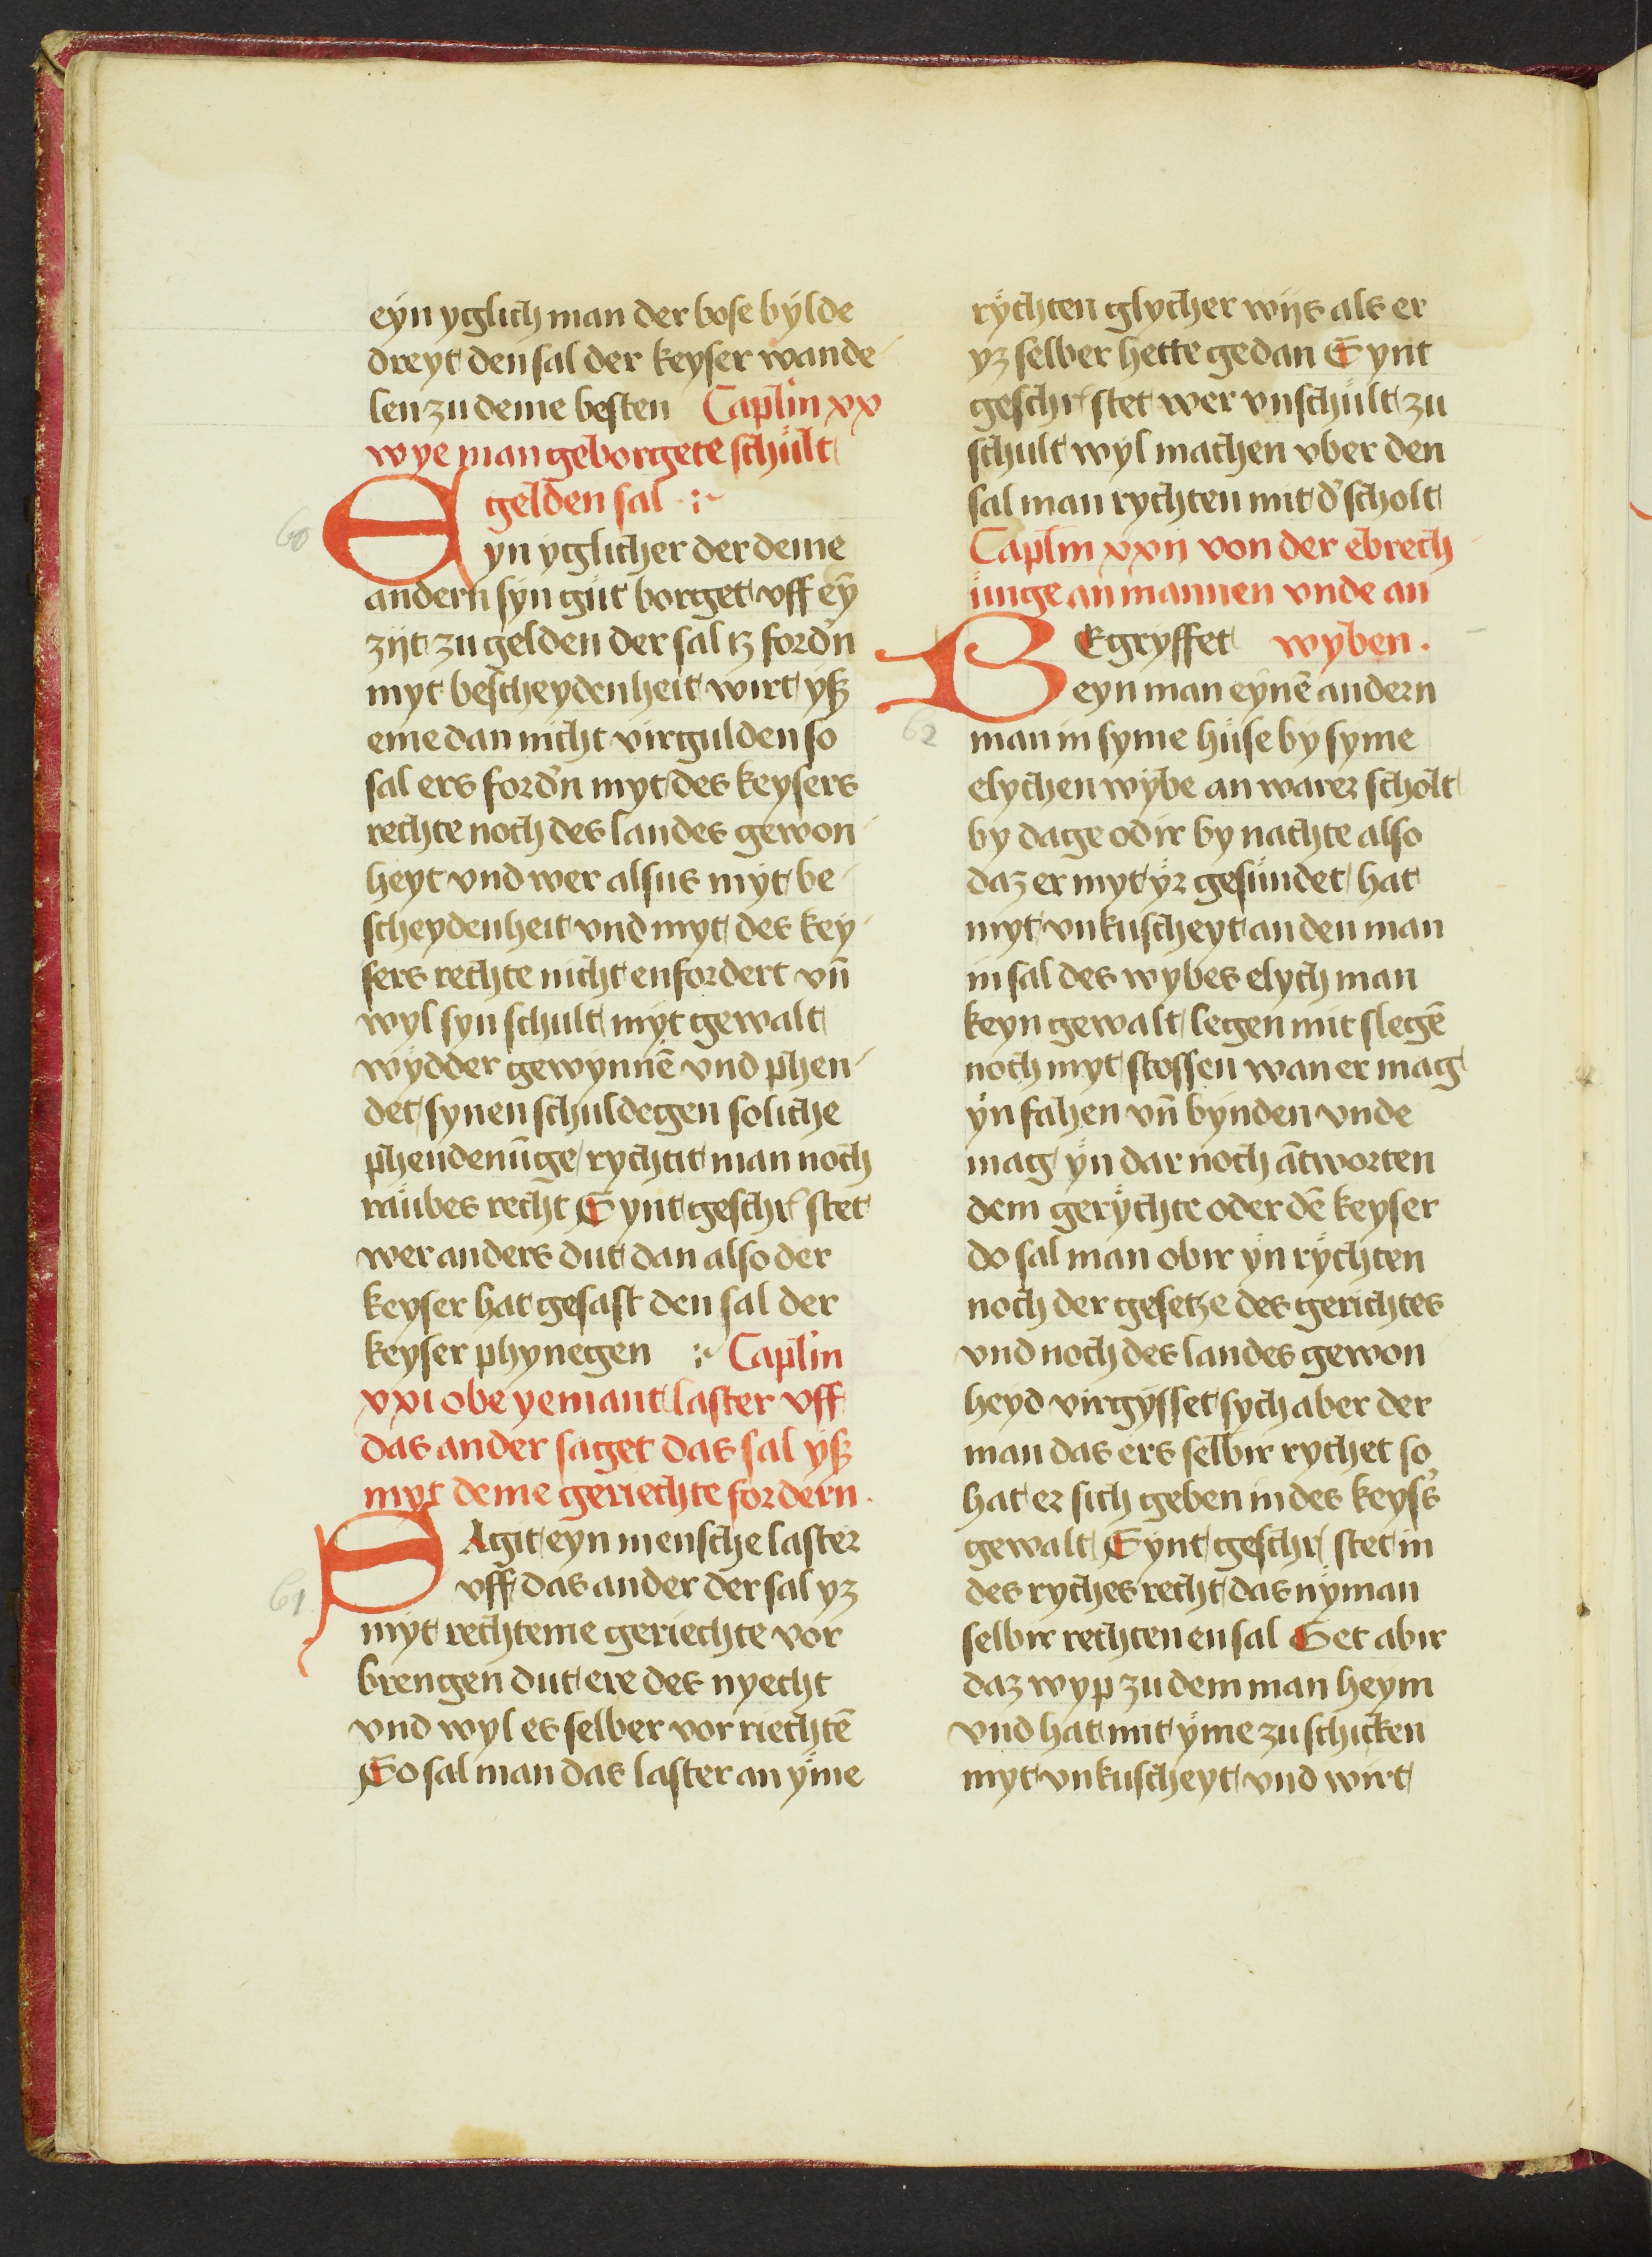 eyn yglich man der bose bylde
dreyt den sal der keyser wande
len zu deme besten Caplm xx
wye man geborgete schult
gelden sal
60
Eyn yglicher der deme
andern syn gut borget vff eȳ
zijt zu gelden der sal iz fordn̄
myt bescheydenheit wirt yß
eme dan nicht virgulden so
sal ers fordn̄ myt des keysers
rechte noch des landes gewon
heyt vnd wer alsus myt be
scheydenheit vnd myt des key
sers rechte nicht enfordert vn̄
wyl syn schult myt gewalt
wydder gewynnē vnd phen
det synen schuldegen soliche
phendenūge rychtit man noch
raubes recht Synt geschr stet
wer anders dut dan also der
keyser hat gesast den sal der
keyser phynegen Caplm
xxi obe yemant laster vff
das ander saget das sal yß
myt deme geriechte fordern.
SAgit eyn mensche laster
61
vff das ander der sal yz
myt rechteme geriechte vor
brengen dut ere des nyecht
vnd wyl es selber vor riechtē
So sal man das laster an yme
rychten glycher wijs als er
yz selber hette gedan Synt
geschr stet wer vnschult zu
schult wyl machen vber den
sal man rychten mit d' scholt
Caplm xxij von der ebrech
unge an mannen vnde an
BEgryffet wyben.
eyn man eynē andern
62
man in syme huse by syme
elychen wybe an warer scholt
by dage odir by nachte also
daz er myt yr gesundet hat
myt vnkuscheyt an den man
in sal des wybes elych man
keyn gewalt legen mit slegē
noch myt stossen wan er mag
yn fahen vn̄ bynden vnde
mag yn dar noch ātworten
dem gerychte oder dē keyser
do sal man obir yn rychten
noch der gesetze des gerichtes
vnd noch des landes gewon
heyd virgysset sych aber der
man das ers selbir rychet so
hat er sich geben in des keys's
gewalt Synt geschr stet in
des ryches recht das nyman
selbir rechten en sal Get abir
daz wyp zu dem man heym
vnd hat mit yme zu schicken
myt vnkuscheyt vnd wirt